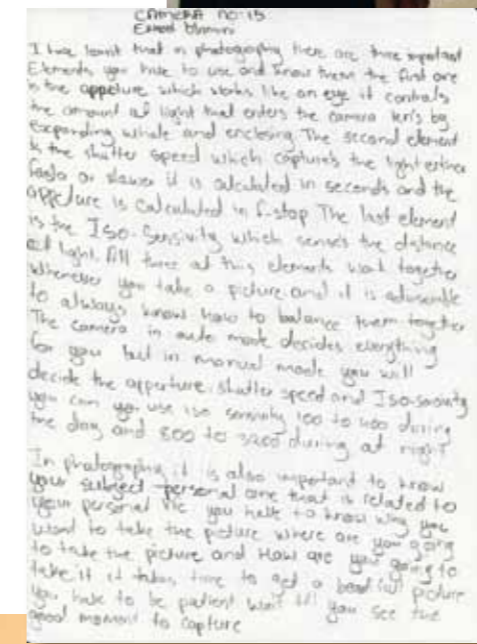 CAMERA NO:15
I have learnt that in photography there are three important
Elements you have to use and know them the first one
is the appeture which works like an eye it controls
the amount of light that enters the camera len's by
Expanding whole and enclosing. The second element
is the shutter speed which captures the light either
faster or slower it is calculated in seconds and the
appeture is calculated in f-stop The last element
is the Iso-Sensivity which senses the distance
of light. All three of this elements work together
Whenever you take a picture and it is adviseable
to always know how to balance them together
The camera in auto mode decides everything
for you but in manual mode you will
decide the apperture, shutter speed and Iso-
you can use iso sensivity 100 to 400 during
the day and 800 to 3200 during at night
In photography it is also important to know
your subject personal one that is related to
your personal life you have to know why you
want to take the picture where are you going
to take the picture and How are you going to
take it it takes time to get a beautiful picture
you have to be patient wait till you see the
good moment to capture